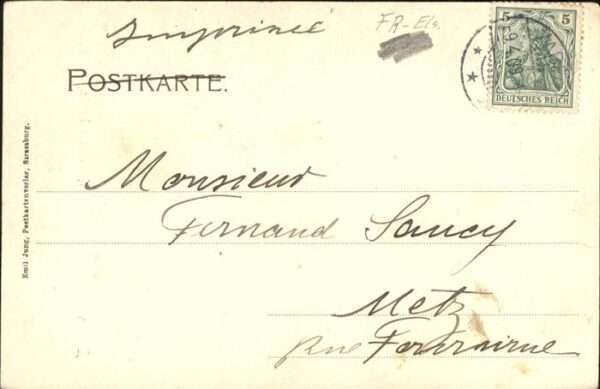 Imprimé
FR-Els.
POSTKARTE.
5 5
DEUTSCHES REICH
Monsieur
Fernand Saucy
Metz
rue Fournirue
Emil Jung, Postkartenverlag, Strassburg.